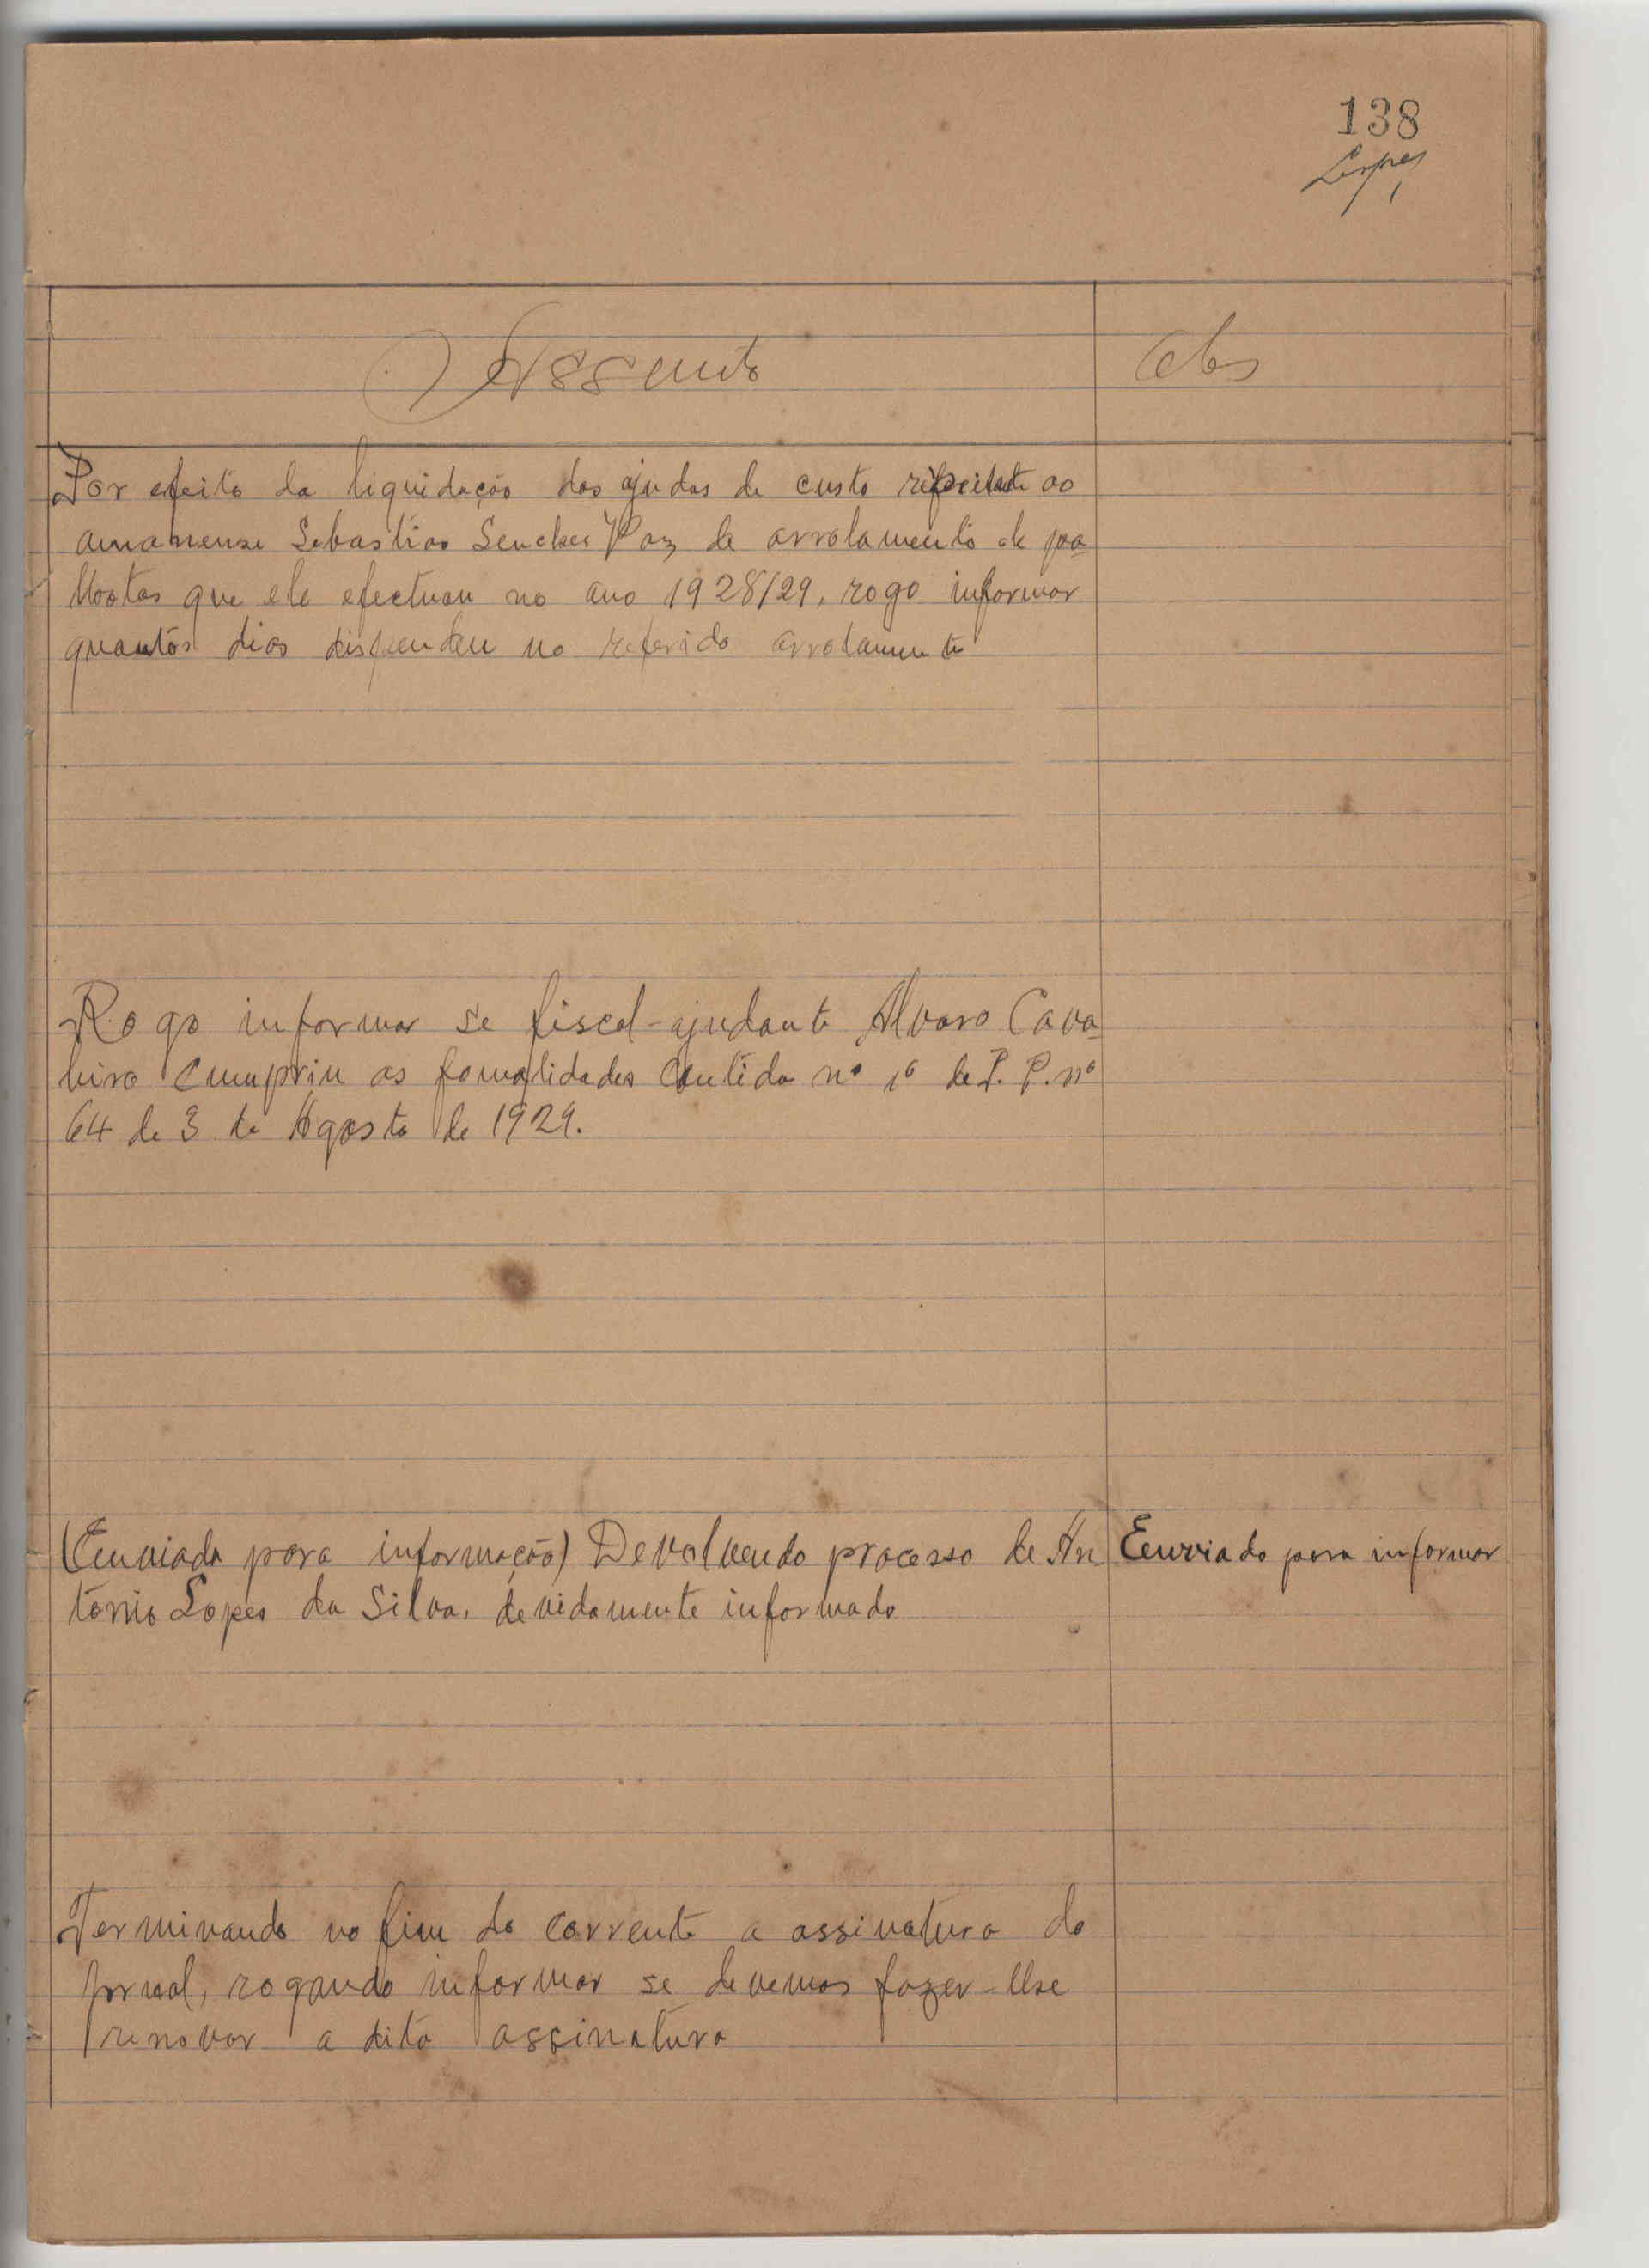 138
Lopes
Assunto
Obs
Por efeito da liquidação das ajudas de custo respeitante ao
amanuense Sebastião Vaz de arrolamento de pa
lhotas que ele efectuou no ano 1928/29, rogo informar
quantos dias dispendeu no referido arrolamento
Rogo informar se fiscal-ajudante Alvaro Cava
leiro cumpriu as formalidades contida nº 1º de P. P. nº
64 de 3 de Agosto de 1929.
(Enviada para informação) Devolvendo processo de An
tónio Lopes da Silva, devidamente informado
Enviado para informar
Terminando no fim do corrente a assinatura do
jornal, rogando informar se devemos fazer-lhe
renovar a dita assinatura